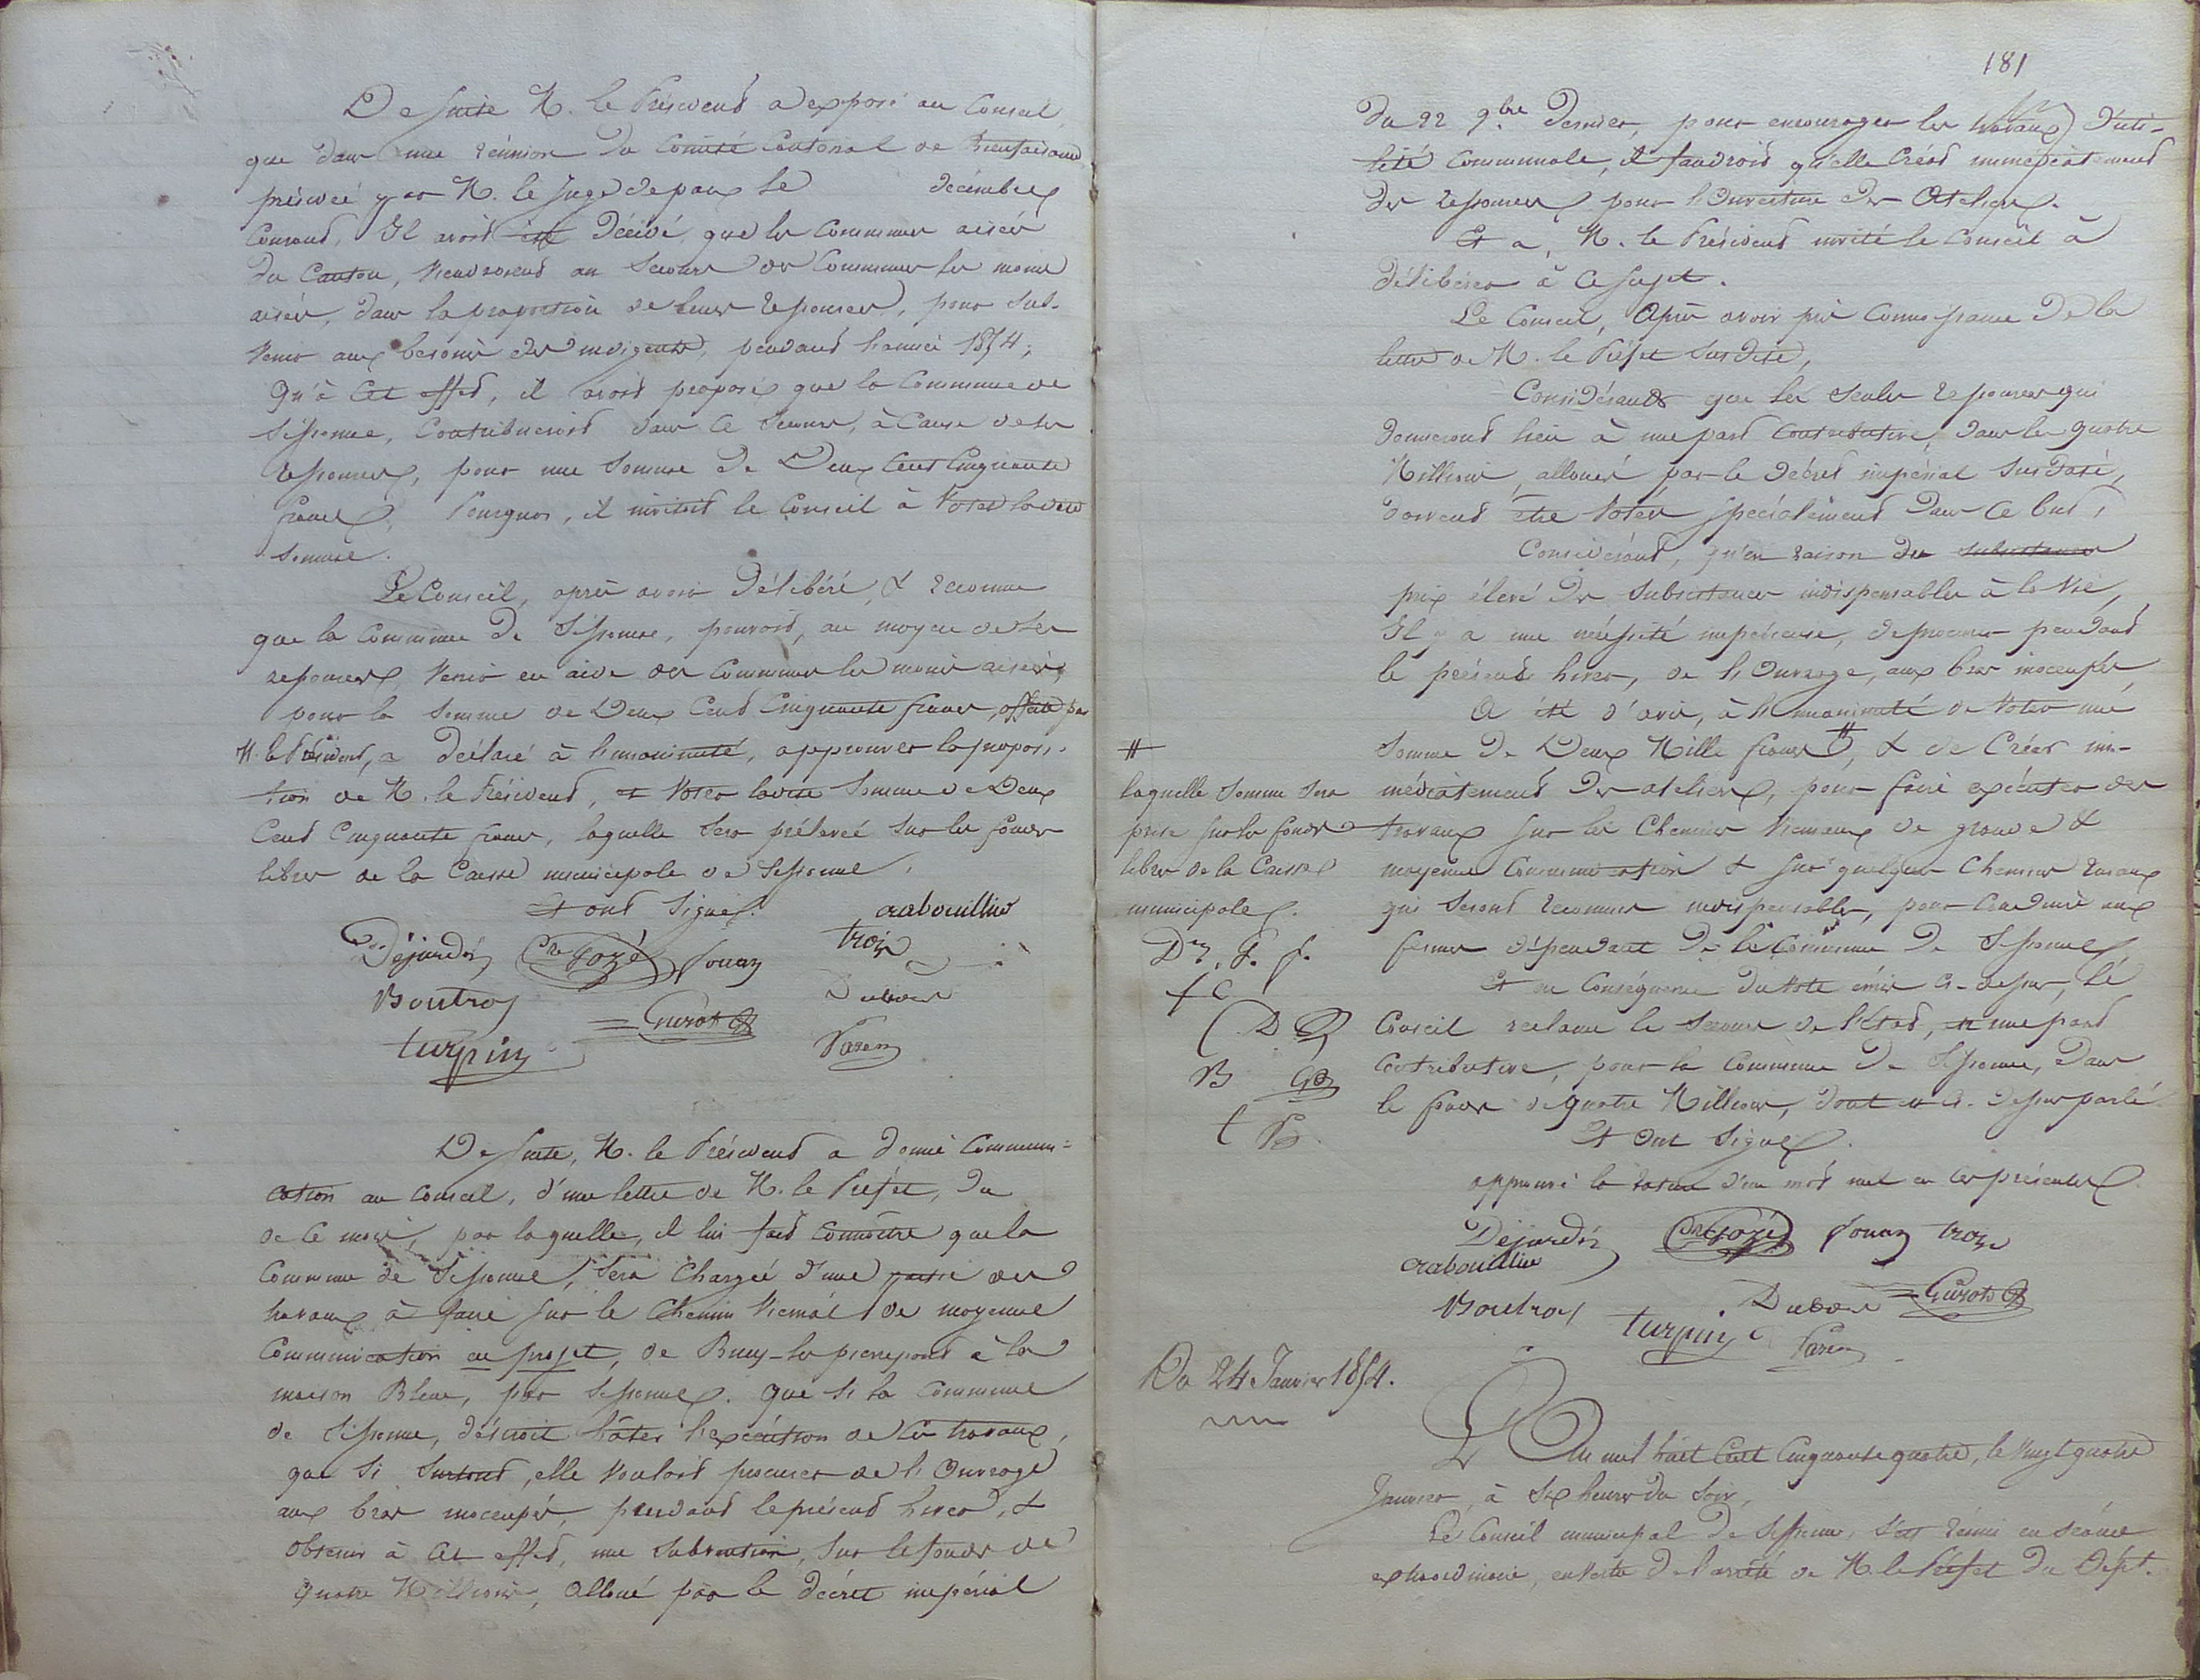 De suite M. le Président a exposé au Conseil
que dans une réunion du Comité Cantonal de Bienfaisance
présidée par M. le Juge de paix le décembre
Courant, Il avait été décidé que les Communes aisées
du Canton, viendroient au Secours des Communes les moins
aisées, dans la proportion de leurs ressources, pour Sub-
venir aux besoins des indigents, pendant l'année 1854;
Qu'à cet effet, il avoit proposé que la Commune de
Sissonne, Contribueroit dans ce Secours, à Cause de ses
ressources, pour une Somme de Deux Cent Cinquante
francs, Pourquoi, il invitoit le Conseil à Voter ladite
Somme.
Le Conseil, après avoir Délibéré, & reconnu
que la Commune de Sissonne, pouvoit, au moyen de ses
ressources venir en aide des Communes les moins aisées,
pour la Somme de Deux Cent Cinquante francs, offerte par
M. le Président, a déclaré à l'unanimité, approuver la proposi-
tion de M. le Président, et Voter ladite Somme de Deux
Cent Cinquante francs, laquelle Sera prélevée Sur les fonds
libres de la Caisse municipale de Sissonne.
Et ont Signé.
Dejardin Cre Gozé Jouan troin crabouillier
Boutroy Guiot Dubois
turpin Paren
De Suite, M. le Président a donné Communi-
cation au Conseil, d'une lettre de M. le Préfet, du
de Ce mois, par laquelle, il lui fait Connoître que la
Commune de Sissonne, Sera Chargée d'une partie des
travaux à faire Sur le Chemin Vicinal de moyenne
Communication en projet, de Bucy-les pierrepont à la
maison Bleue, par Sissonne. que si la Commune
de Sissonne, désiroit hâter l'exécution de ces travaux,
que si Surtout, elle Vouloit procurer de l'Ouvrage
aux bras inoccupés, pendant le présent hiver, &
Obtenir à Cet effet, une Subvention, Sur les fonds de
quatre Millions, Alloué par le décret impérial
181
du 22 9.bre dernier, pour encourager les travaux d'uti-
lité Communale, il faudroit qu'elle Créât immédiatement
des ressources pour l'Ouverture des Ateliers.
Et a, M. le Président invité le Conseil à
délibérer à Ce Sujet.
Le Conseil, Après avoir pris Connoissance de la
lettre de M. le Préfet Sus dite,
Considérant que les Seules ressources qui
donneront lieu à une part Contributive, dans les quatre
Millions, alloués par le Décret impérial Sus daté,
doivent être Votées Spécialement dans Ce but,
Considérant, qu'en raison du subsistances
prix élevé des Subsistances indispensables à la Vie,
Il y a une nécessité impérieuse, de procurer pendant
le présent hiver, de l'Ouvrage, aux bras inoccupés,
A été d'avis, à l'unanimité de Voter une
Somme de Deux Mille francs #, & de Créer im-
médiatement des ateliers, pour faire exécuter des
travaux Sur les Chemins Vicinaux de grande &
moyenne Communication & Sur quelques Chemins ruraux
qui Seront reconnus indispensables, pour Conduire aux
fermes dépendant de la Commune de Sissonne,
Et en Conséquence du Vote émis Ci-dessus, le
Conseil réclame le Secours de l'état, et une part
Contributive, pour la Commune de Sissonne, dans
le fonds de quatre Millions, dont est Ci-dessus parlé.
Et Ont Signé.
#
laquelle Somme Sera
prise Sur les fonds
libres de la Caisse
municipale.
approuvé la rature d'un mot nul en ces présentes.
Dejardin Cre Gozé Jouan troin
crabouillier
Boutroy turpin Dubois Guiot
Paren
Du 24 Janvier 1854.
L'An mil huit Cent Cinquante quatre, le Vingt quatre
Janvier, à Six heures du Soir,
Le Conseil municipal de Sissonne, s'est réuni en séance
extraordinaire, en Vertu de l'arrêté de M. le Préfet du Dépt.